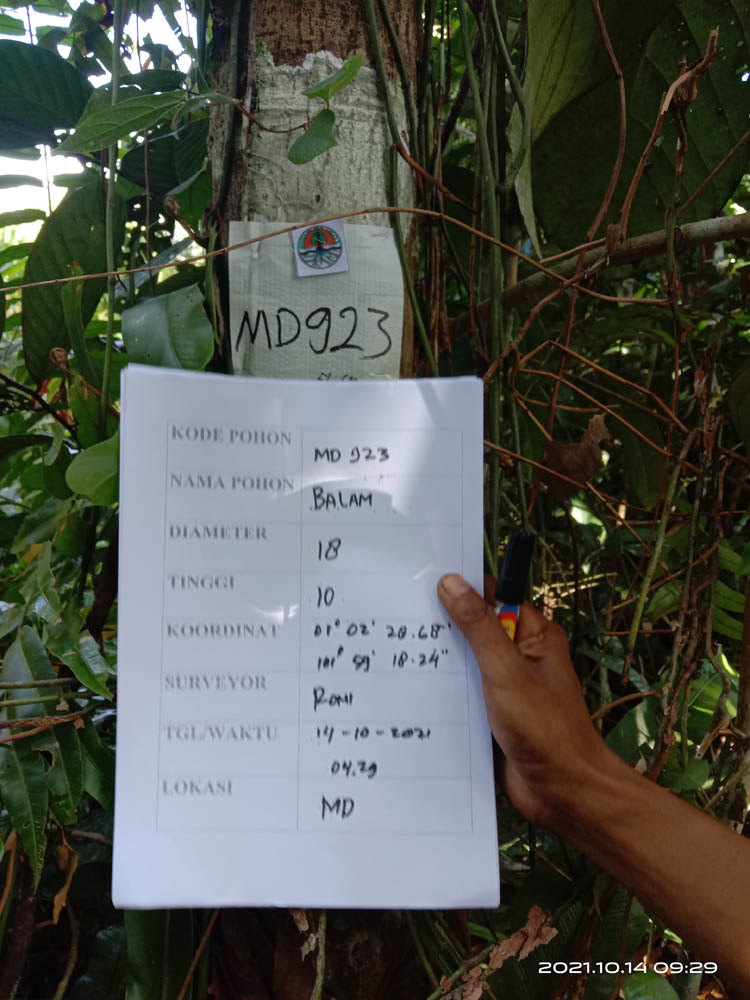 MD923
KODE POHON MD 923
NAMA POHON BALAM
DIAMETER 18
TINGGI 10
KOORDINAT 01° 02' 28.68"
101° 59' 18.24"
SURVEYOR RONI
TGL/WAKTU 14-10-2021
04.29
LOKASI MD
2021.10.14 09:29